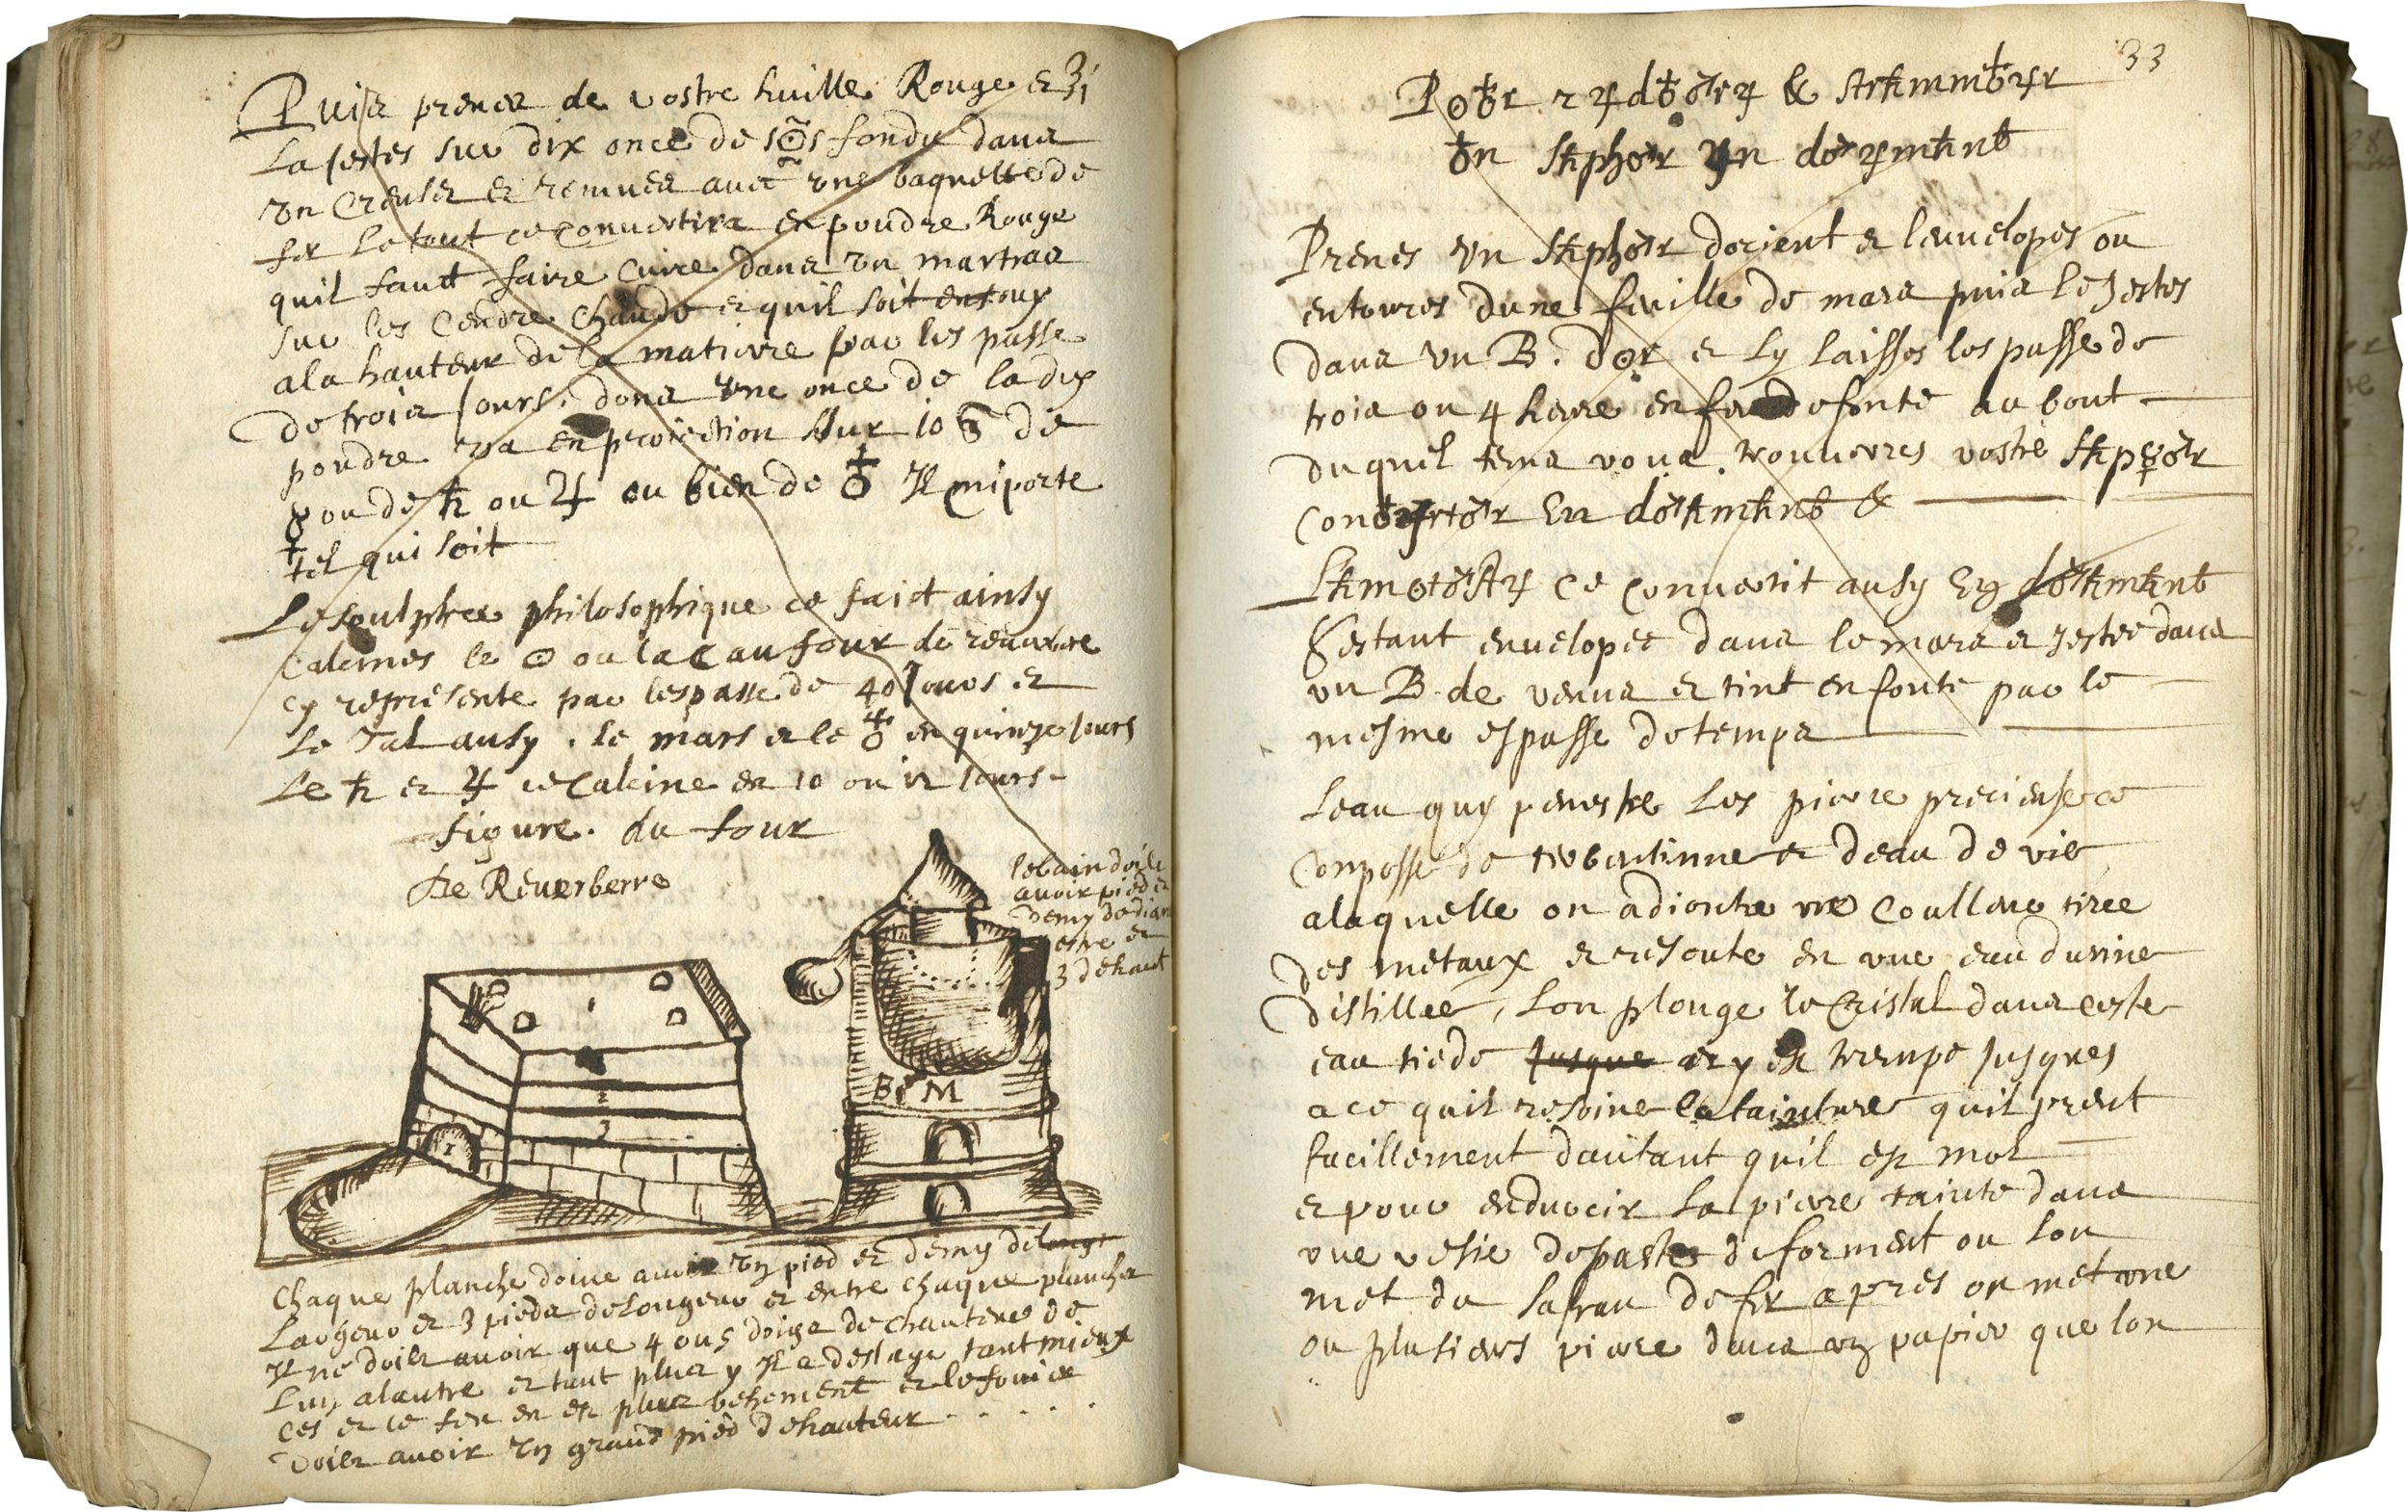 Puis prenes de vostre huille Rouge et ʒi
La jettes sur dix once de s☉s fondu dans
un Creuset et remues avec une baguette de
fer le tout ce convertira en poudre Rouge
quil faut faire cuire dans un martras
sur les cendre chaude et quil soit entouy
a la hauteur de la matierre par les passe
de trois jours, dons une once de ladix
poudre va en proiection sur 10 de
♀ ou de ♄ ou ♃ ou bien de ♁ Il miporte
tel qui soit
Le soulphre philosophique ce faict ainsy
calcines le ☉ ou la ☾ au four de reverbere
cy represente par lespasse de 40 jours et
le Tal ausy. le mars et le ♁ en quinze jours
Le ♄ et ♃ ce calcine en 10 ou 12 jours-
figure. du four
De Reverberre
le bain doit
avoir pied et
demy de diam
etre et
3 de haut
1
2
3
1
B M
Chaque planche doive avoir un pied et demy de longt
Largeur et 3 pieds de longeur et entre chaque planche
Il ne doits avoir que 4 ou 5 doigs de hauteur de
Lun a lautre et tant plus y Il a destage tant mieux
Ces et le feu en est plus vehement et le fouier
Doits avoir un grand pied de hauteur . . . . .
33
P☉♁r r♃d♁♂r♃ & st♄mm♁♃r
♁n S♄ph♂r ♃n d♂♃m♄nt
Prenes un S♄ph♂r dorient et lenvelopes ou
entoures dune feuille de mars puis le jettes
dans un B. d☉r et Ly laisses lespasse de
trois ou 4 heure en feu de fonte au bout
duquel tems vous trouverres vostre S♄ph♂r
Con♁♃rt♂r En d♂♄m♄nt &
L♄m☉t♂st♃ ce convertit ausy En d♂♄m♄nt
Estant envelopee dans le mars et jettee dans
un B. de venus et tint en fonte par le
mesme espasse de temps
Leau quy penestre Les pierre precieuse ce
Conposse de terbentinne et deau de vie
alaquelle on adioute une coulleur tiree
des metaux et resoute en une eau durine
distillee, Lon plonge le Cristal dans ceste
eau tiede jusque et y est trempe jusques
a ce quil resoive la tainture quil prent
facillement dautant quil est mol
et pour endurcir La pierre tainte dans
une vesie de paste de forment ou lon
met du safran de fer apres on met une
ou plusieurs pierre dans un papier que lon